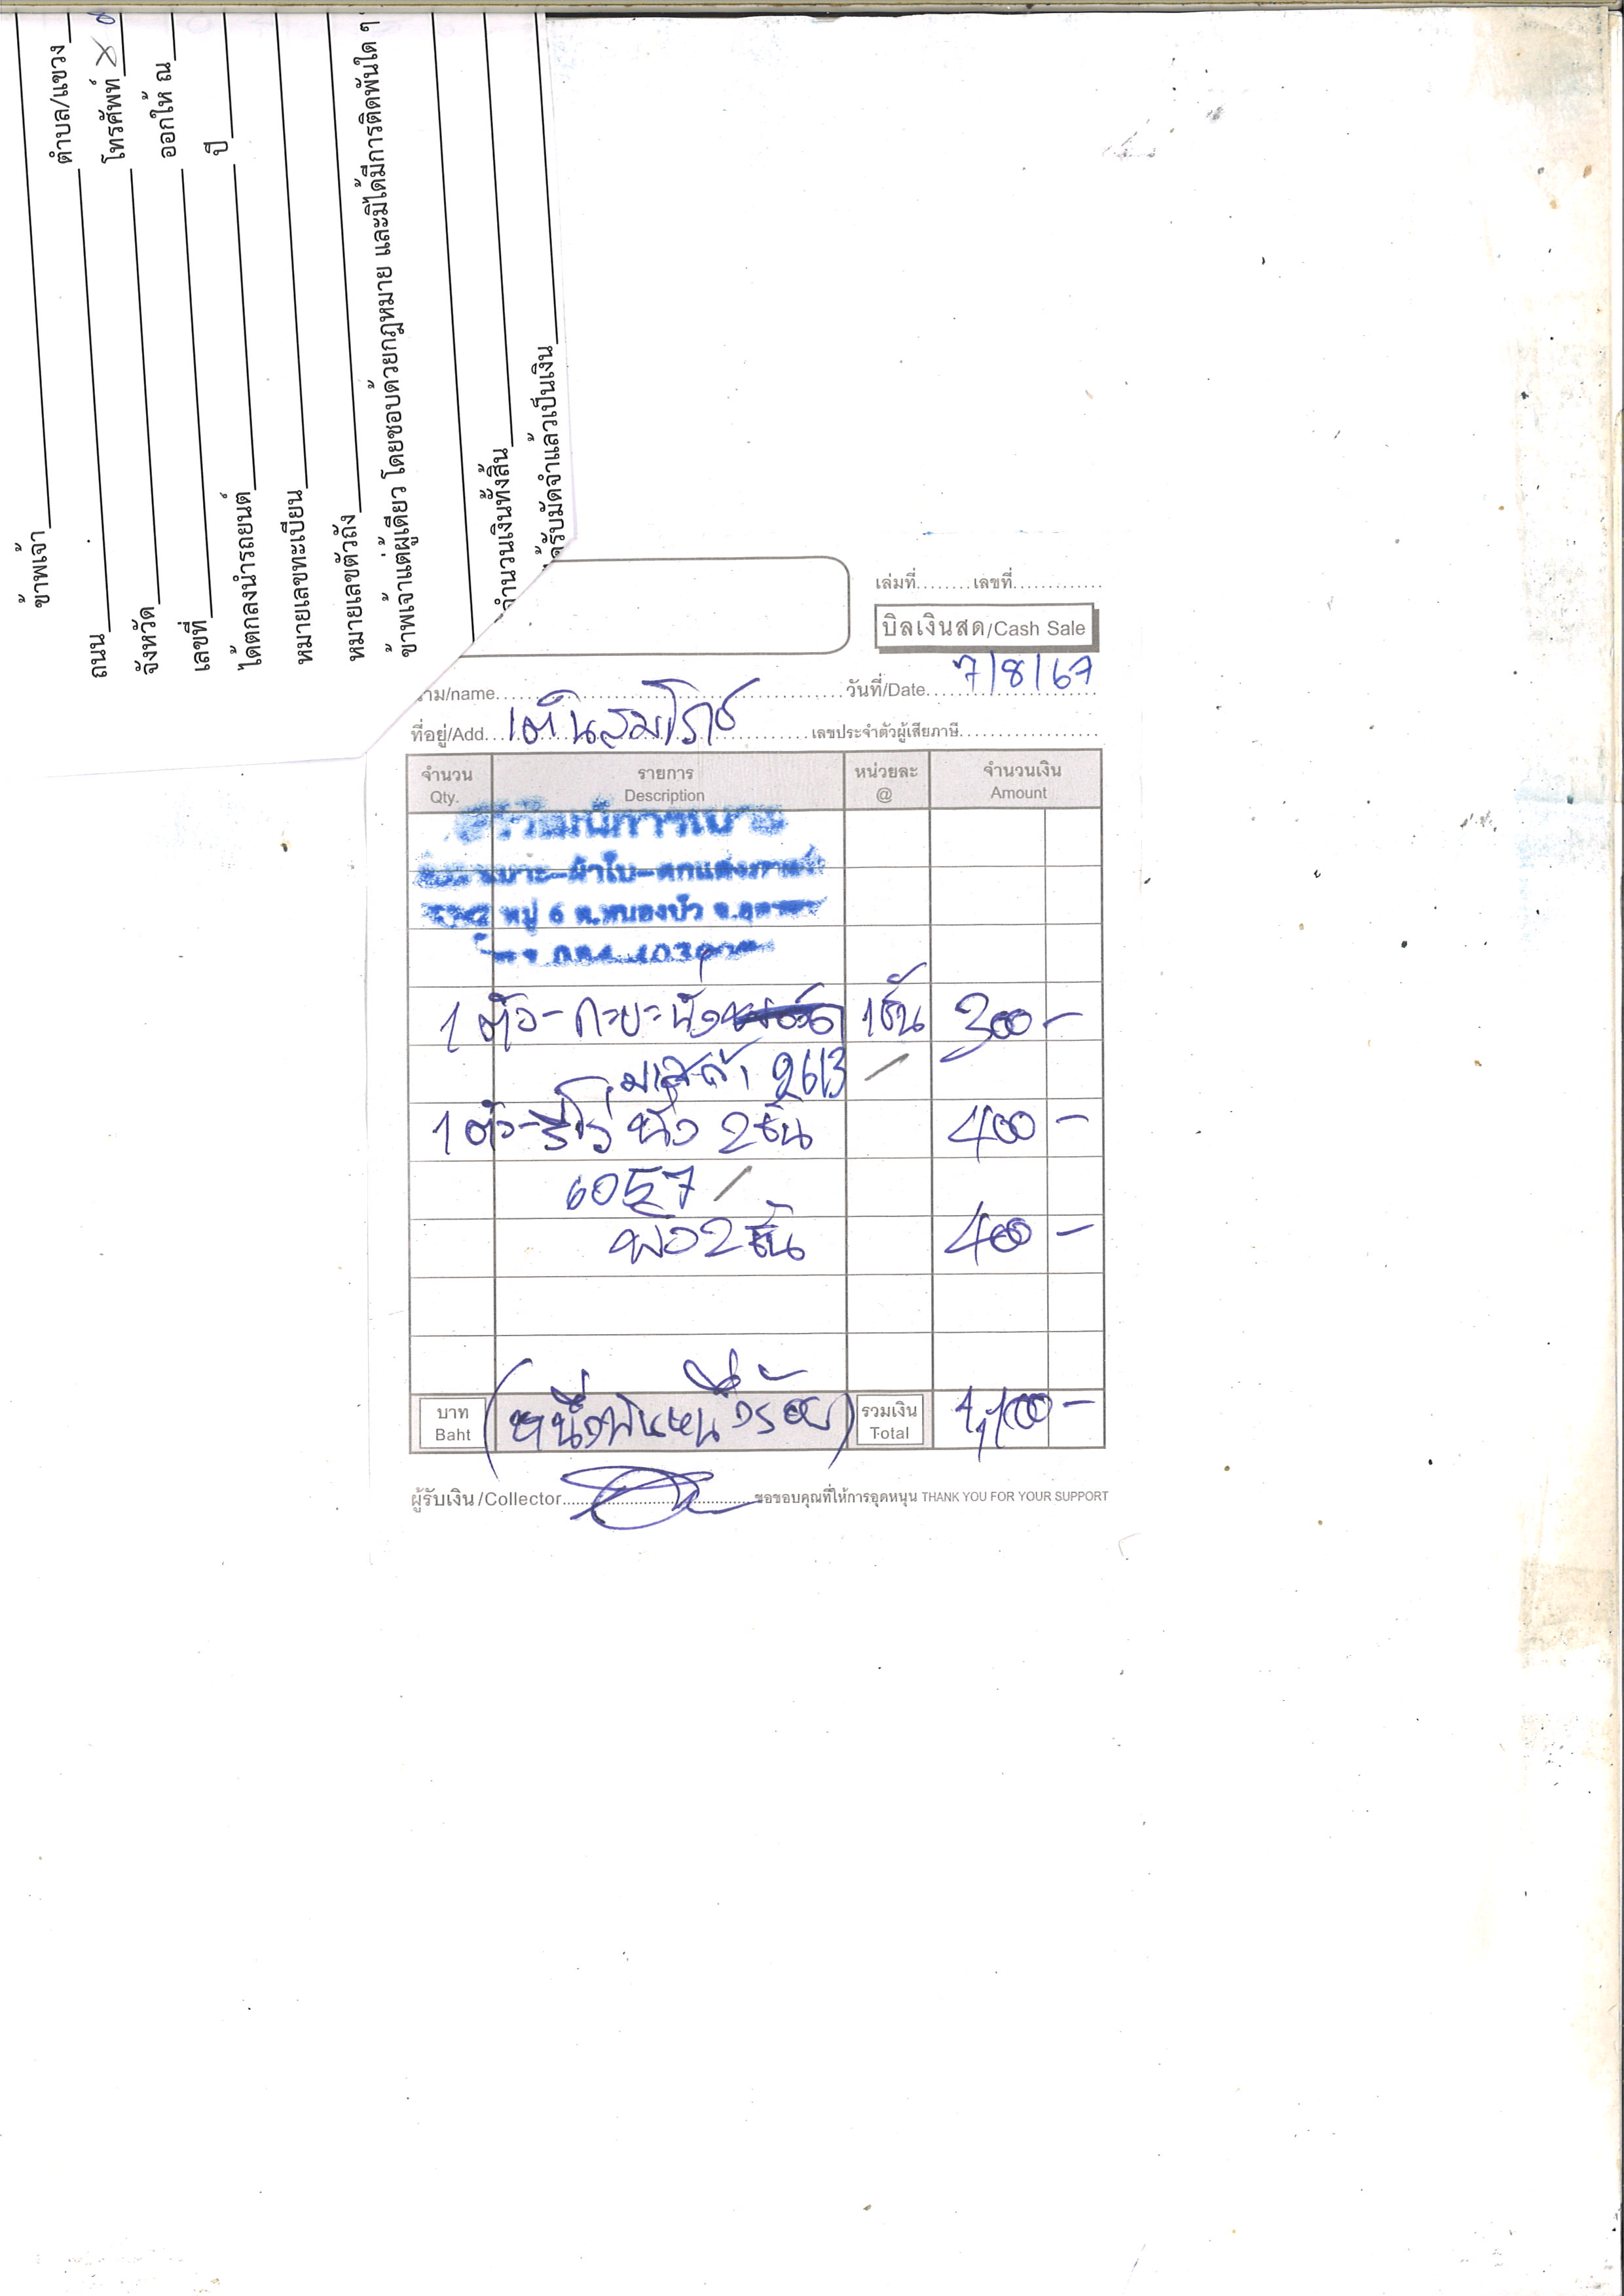 ข้าพเจ้า
ตำบล/แขวง
ถนน
โทรศัพท์
จังหวัด
ออกให้ ณ
เลขที่
ปี
ได้ตกลงนำรถยนต์
หมายเลขทะเบียน
หมายเลขตัวถัง
ข้าพเจ้าแต่ผู้เดียว โดยชอบด้วยกฎหมาย และมิได้มีการติดพันใด ๆ
จำนวนเงินทั้งสิ้น
รับมัดจำแล้วเป็นเงิน
เล่มที่ เลขที่
บิลเงินสด/Cash Sale
นาม/name วันที่/Date 7/8/67
ที่อยู่/Add. เต็นสมโภช เลขประจำตัวผู้เสียภาษี
จำนวน รายการ หน่วยละ จำนวนเงิน
Qty. Description @ Amount
เบาะ-ผ้าใบ-ตกแต่งภายใน
หมู่ 6 ต.หนองบัว จ.อุดร
1 ตัว- กะบะ นั่ง 1ชั้น 300 -
มาสด้า 2613
1 ตัว- นั่ง 2ชั้น 400 -
6057
พิง 2 ชั้น 400 -
บาท (หนึ่งพันหนึ่งร้อย) รวมเงิน 1,100 -
Baht Total
ผู้รับเงิน/Collector ขอขอบคุณที่ให้การอุดหนุน THANK YOU FOR YOUR SUPPORT